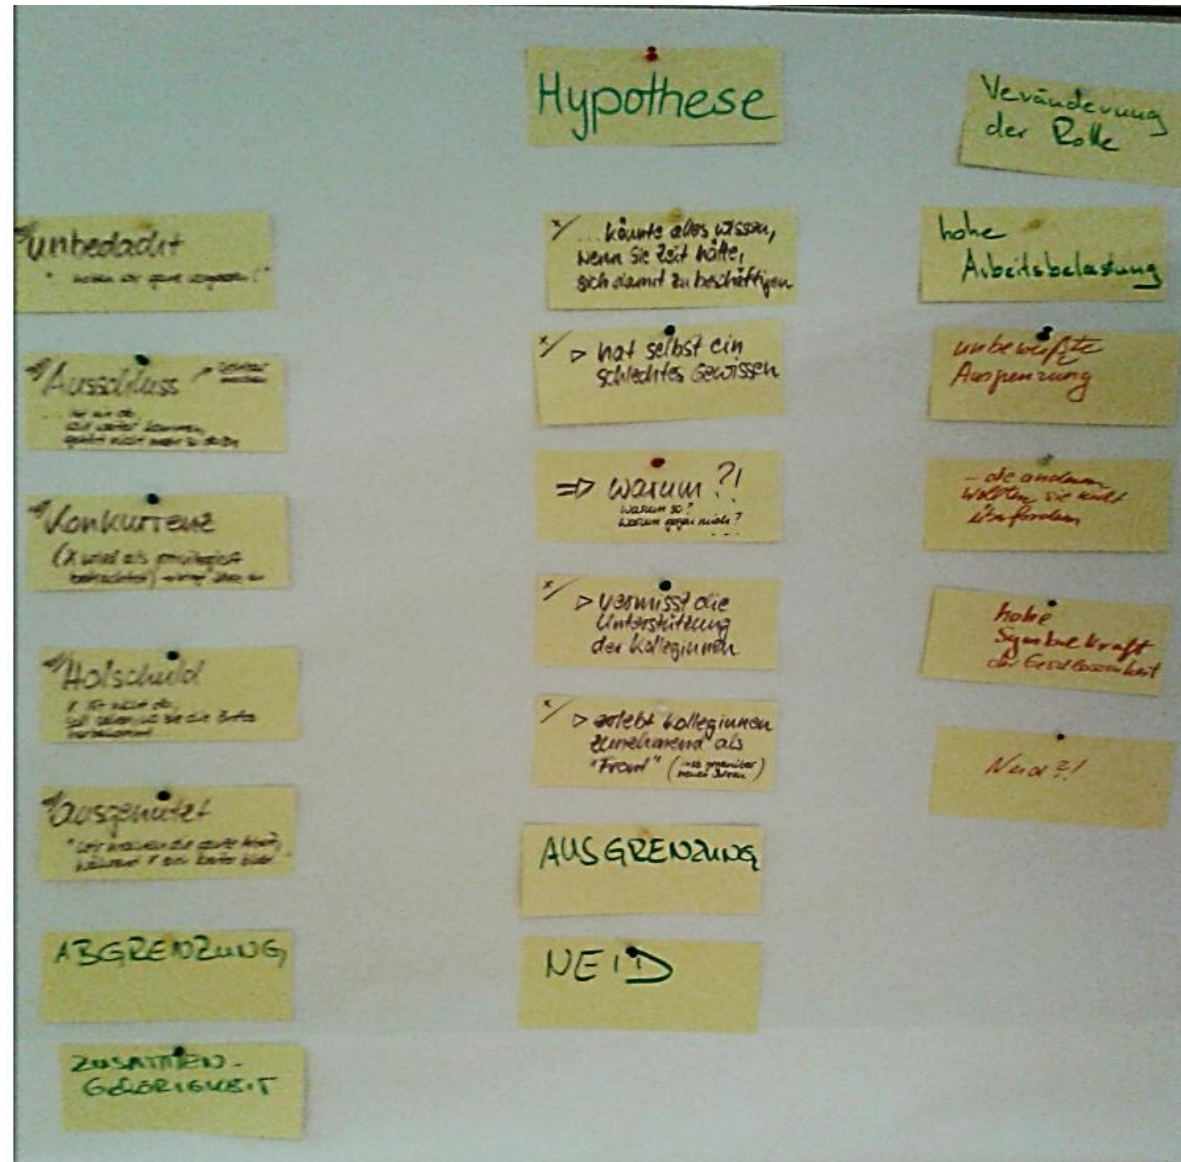 Hypothese
unbedacht
Ausschluss
gehört nicht mehr so dazu
Konkurrenz
(X wird als privilegiert
betrachtet)
Holschuld
X ist nicht da,
ausgenützt
ABGRENZUNG
ZUSAMMEN-
GEHÖRIGKEIT
X/ ... könnte alles wissen,
wenn sie Zeit hätte,
sich damit zu beschäftigen
X/ > hat selbst ein
schlechtes Gewissen
=> warum ?!
warum so?
warum gegen mich?
...
X/ > vermisst die
Unterstützung
der Kolleginnen
X/ > erlebt Kolleginnen
zunehmend als
"Front"
AUSGRENZUNG
NEID
Veränderung
der Rolle
hohe
Arbeitsbelastung
unbewußte
... die anderen
wollten sie nicht
überfordern
hohe
Symbolkraft
der Geschlossenheit
Neid?!